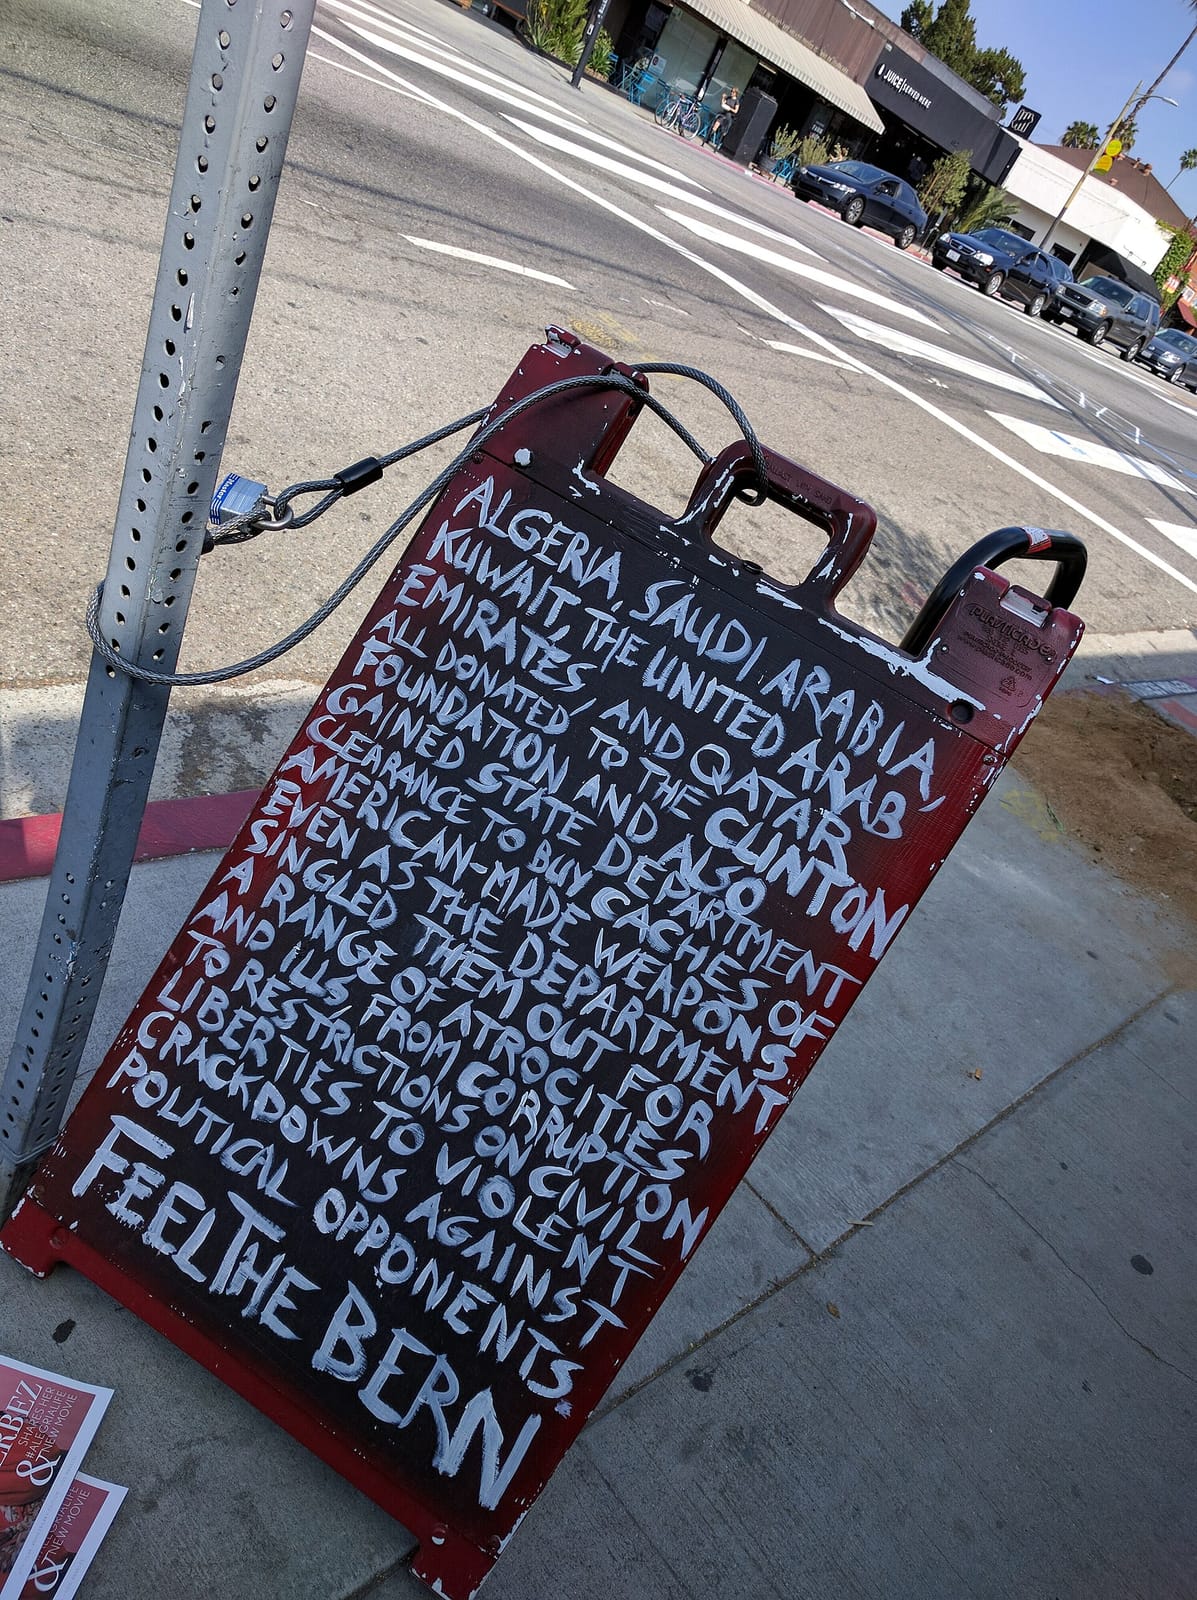 JUICE SERVED HERE
Master
BALLAST WITH SAND
PLASTICADE
ALGERIA, SAUDI ARABIA,
KUWAIT, THE UNITED ARAB
EMIRATES, AND QATAR
ALL DONATED TO THE CLINTON
FOUNDATION AND ALSO
GAINED STATE DEPARTMENT
CLEARANCE TO BUY CACHES OF
AMERICAN-MADE WEAPONS
EVEN AS THE DEPARTMENT
SINGLED THEM OUT FOR
A RANGE OF ATROCITIES
AND ILLS FROM CORRUPTION
TO RESTRICTIONS ON CIVIL
LIBERTIES TO VIOLENT
CRACKDOWNS AGAINST
POLITICAL OPPONENTS.
FEEL THE BERN
RBEZ
SHARES HER
#ALEGRIALIFE
& NEW MOVIE
#ALEGRIALIFE
& NEW MOVIE